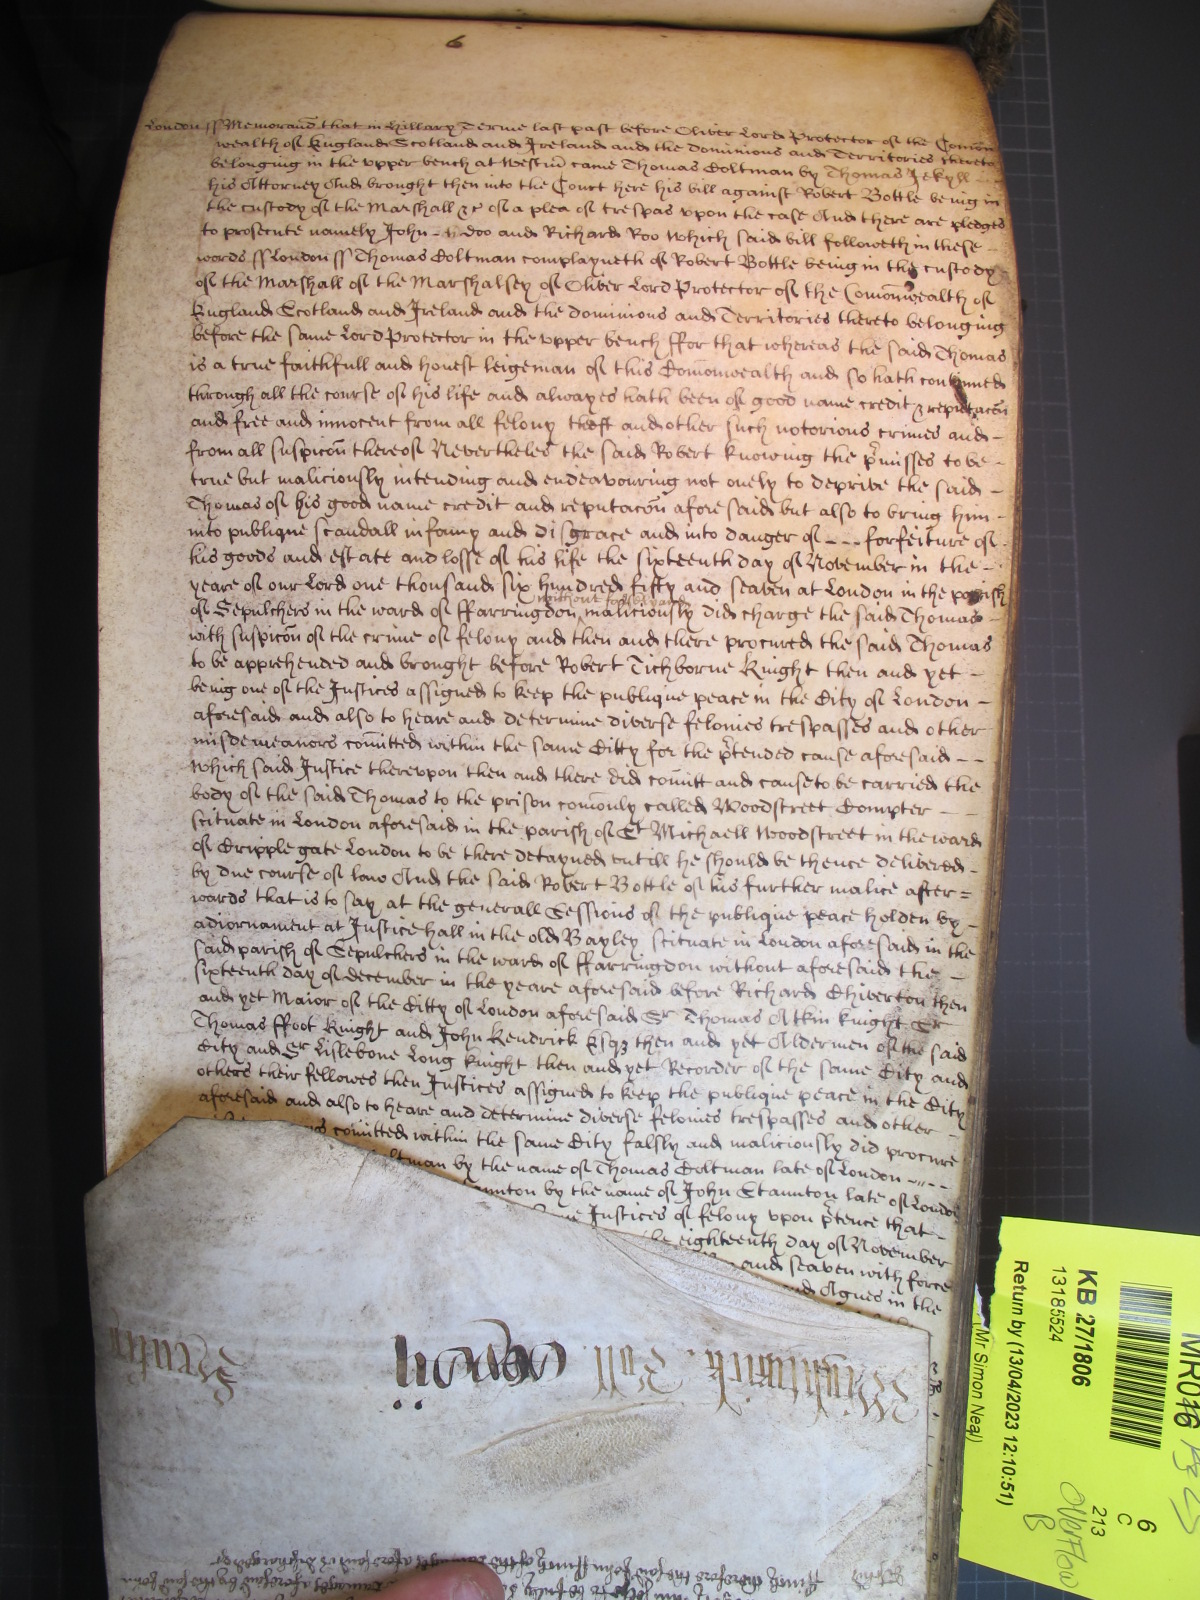 6
London ss Memorand that in Hillary Terme last past before Oliver Lord Protector of the Comon
wealth of England Scotland and Ireland and the dominions and Territories thereto
belonging in the upper bench at Westm came Thomas Coltman by Thomas Jekyll
his Attorney And brought then into the Court here his bill against Robert Bottle being in
the custody of the Marshall &c of a plea of trespas upon the case And there are pledges
to prosecute namely John Doo and Richard Roo Which said bill followeth in these
words ss London ss Thomas Coltman complayneth of Robert Bottle being in the custody
of the Marshall of the Marshalsey of Oliver Lord Protector of the Comonwealth of
England Scotland and Ireland and the dominions and Territories thereto belonging
before the same Lord Protector in the upper bench ffor that whereas the said Thomas
is a true faithfull and honest leigeman of this Comonwealth and so hath continued
through all the course of his life and alwayes hath been of good name credit & reputacon
and free and innocent from all felony theft and other such notorious crimes and -
from all suspicon thereof Nevertheles the said Robert knowing the pmisses to be -
true but maliciously intending and endeavouring not onely to deprive the said -
Thomas of his good name credit and reputacon aforesaid but also to bring him -
into publique scandall infamy and disgrace and into danger of - - - forfeiture of
his goods and estate and losse of his life the sixteenth day of November in the -
yeare of our Lord one thousand six hundred fifty and seaven at London in the parish
without falsly and
of Sepulchers in the ward of ffarringdon maliciously did charge the said Thomas
with suspicon of the crime of felony and then and there procured the said Thomas
to be apprehended and brought before Robert Tichborne Knight then and yet -
being one of the Justices assigned to keep the publique peace in the City of London -
aforesaid and also to heare and determine diverse felonies trespasses and other
misdemeanors comitted within the same Citty for the ptended cause aforesaid - -
Which said Justice therevpon then and there did comitt and cause to be carried the
body of the said Thomas to the prison comonly called Woodstreet Compter -
scituate in London aforesaid in the parish of St Michaell Woodstreet in the ward
of Cripplegate London to be there detayned vntill he should be thence delivered -
by due course of law And the said Robert Bottle of his further malice after =
wards that is to say at the generall Sessions of the publique peace holden by -
adiornament at Justice hall in the old Bayley scituate in London aforesaid in the
said parish of Sepulchers in the ward of ffarringdon without aforesaid the -
sixteenth day of december in the yeare aforesaid before Richard Chiverton then
and yet Maior of the Citty of London aforesaid Sr Thomas Atkin knight Sr
Thomas ffoot Knight and John Kendrick Esqz then and yet Aldermen of the said
City and Sr Lislebone Long knight then and yet Recorder of the same City and
others their fellowes then Justices assigned to keep the publique peace in the City
aforesaid and also to heare and determine diverse felonies trespasses and other -
comitted within the same City falsly and maliciously did procure
ltman by the name of Thomas Coltman late of London
aunton by the name of John Staunton late of London
Justices of felony upon ptence that -
the eighteenth day of November
and seaven with force
Agnes in the
Wightwick Roll
KB 27/1806
13185524
Return by (13/04/2023 12:10:51)
(Mr Simon Neal)
6
C
213
Overflow
B